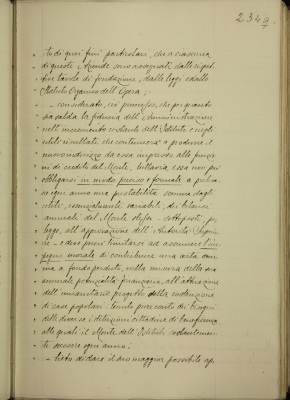 2349.
to di quei fini particolari, che a ciascuna
di queste Aziende sono assegnati, dalle rispet-
tive tavole di fondazione, dalle leggi e dallo
Statuto Organico dell'Opera;
- considerato, ciò premesso, che per quanto
sia salda la fiducia dell'Amministrazione
nell'incremento costante dell'Istituto e negli
utili risultati che continuerà a produrre il
nuovo indirizzo da essa impresso alle funzio-
ni di credito del Monte, tuttavia essa non può
obbligarsi in modo preciso e formale a presta-
re ogni anno una prestabilita somma dagli
utili, essenzialmente variabili, dei bilanci
annuali del Monte stesso - sottoposti, per
legge, all'approvazione dell'Autorità Superio-
re - e deve pure limitarsi ad assumere l'im-
pegno morale di contribuire una certa som-
ma a fondo perduto, nella misura della sua
annuale potenzialità finanziaria, all'attuazione
dell'umanitario progetto della costruzione
di case popolari, tenuto pure conto dei bisogni
delle diverse istituzioni cittadine di beneficenza,
alle quali il Monte dell'Istituto volontariamen-
te soccorre ogni anno;
- lieto di dare il suo maggior possibile ap-